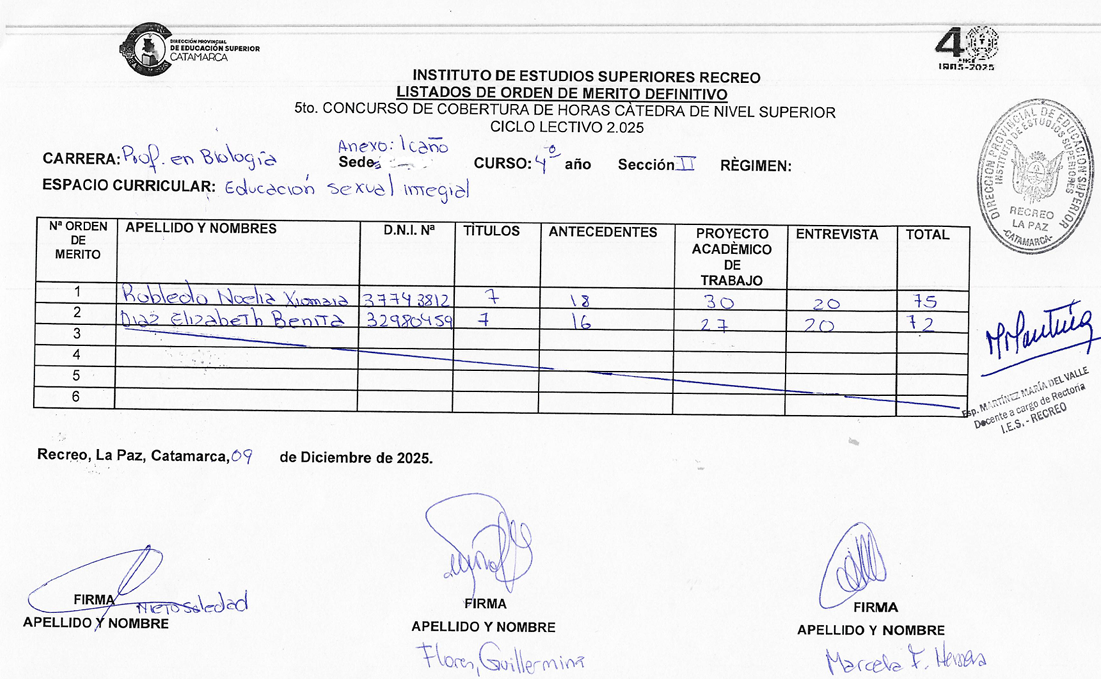 DIRECCIÓN PROVINCIAL
DE EDUCACIÓN SUPERIOR
CATAMARCA
40
AÑOS
1985-2025
INSTITUTO DE ESTUDIOS SUPERIORES RECREO
LISTADOS DE ORDEN DE MERITO DEFINITIVO
5to. CONCURSO DE COBERTURA DE HORAS CÀTEDRA DE NIVEL SUPERIOR
CICLO LECTIVO 2.025
CARRERA: Prof. en Biología Anexo: Icaño Sede: CURSO: 4º año Sección II RÈGIMEN:
ESPACIO CURRICULAR: Educación sexual integral
DIRECCIÓN PROVINCIAL DE EDUCACIÓN SUPERIOR
INSTITUTO DE ESTUDIOS SUPERIORES
RECREO
LA PAZ
-CATAMARCA-
Nª ORDEN DE MERITO APELLIDO Y NOMBRES D.N.I. Nª TÌTULOS ANTECEDENTES PROYECTO ACADÈMICO DE TRABAJO ENTREVISTA TOTAL
1 Robledo Noelia Xiomara 37743812 7 18 30 20 75
2 Diaz Elizabeth Benita 32980459 7 16 27 20 72
3
4
5
6
Esp. MARTÍNEZ MARÍA DEL VALLE
Docente a cargo de Rectoría
I.E.S. - RECREO
Recreo, La Paz, Catamarca, 09 de Diciembre de 2025.
FIRMA Nieto Soledad
APELLIDO Y NOMBRE
FIRMA
APELLIDO Y NOMBRE
Flores, Guillermina
FIRMA
APELLIDO Y NOMBRE
Marcela F. Herrera